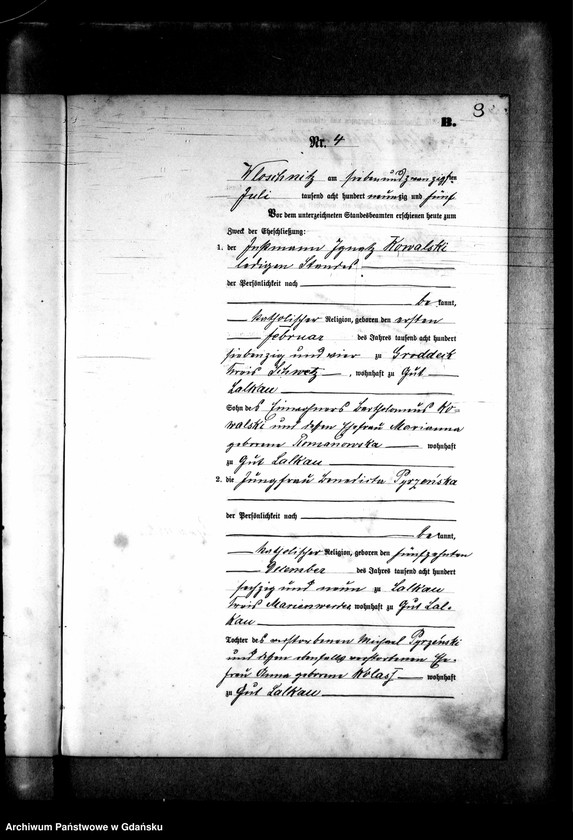 B. 8
Nr. 4
Wloschnitz am siebenundzwanzigsten
Juli tausend acht hundert neunzig und fünf
Vor dem unterzeichneten Standesbeamten erschienen heute zum
Zweck der Eheschließung:
1. der Instmann Ignatz Kowalski
ledigen Standes
der Persönlichkeit nach
be kannt,
katholischer Religion, geboren den ersten
Februar des Jahres tausend acht hundert
siebenzig und vier zu Groddeck
Kreis Schwetz, wohnhaft zu Gut
Lalkau
Sohn des Einwohners Bartholomäus Ko-
walski und dessen Ehefrau Marianna
geborene Romanowska wohnhaft
zu Gut Lalkau
2. die Jungfrau Benedicta Pyrzenska
der Persönlichkeit nach
be kannt,
katholischer Religion, geboren den fünfzehnten
Dezember des Jahres tausend acht hundert
sechzig und neun zu Lalkau
Kreis Marienwerder, wohnhaft zu Gut Lal-
kau
Tochter des verstorbenen Michael Pyrzinski
und dessen ebenfalls verstorbenen Ehe-
frau Anna geborene
wohnhaft
zu Gut Lalkau
Archiwum Państwowe w Gdańsku